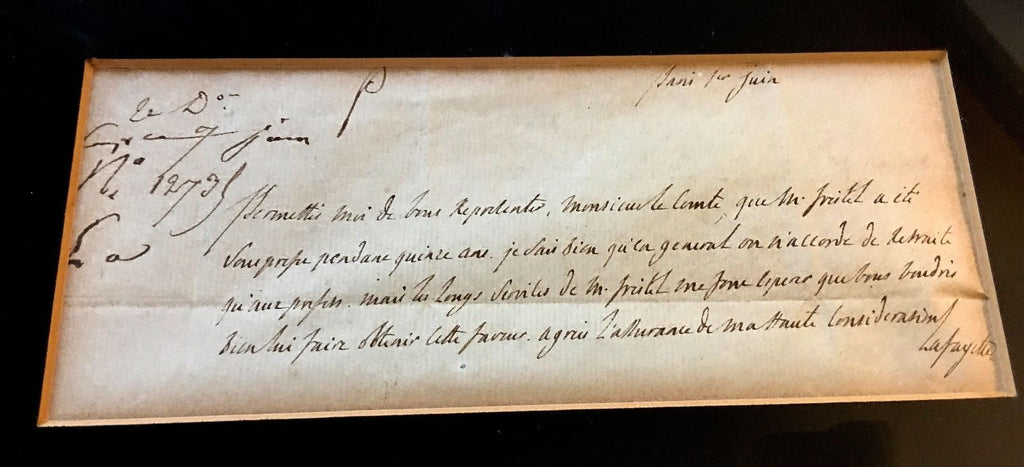 P
Paris 1er juin
2e Don
7 juin
No 1273
Permettés moi de vous représenter, monsieur le Comte, que M. fristel a été
souprefet pendant quinze ans. je sais bien qu'en general on n'accorde de Retraite
qu'aux prefets. mais les longs services de M. fristel me font esperer que vous voudrés
bien lui faire obtenir cette faveur. agréés l'assurance de ma Haute Consideration
Lafayette